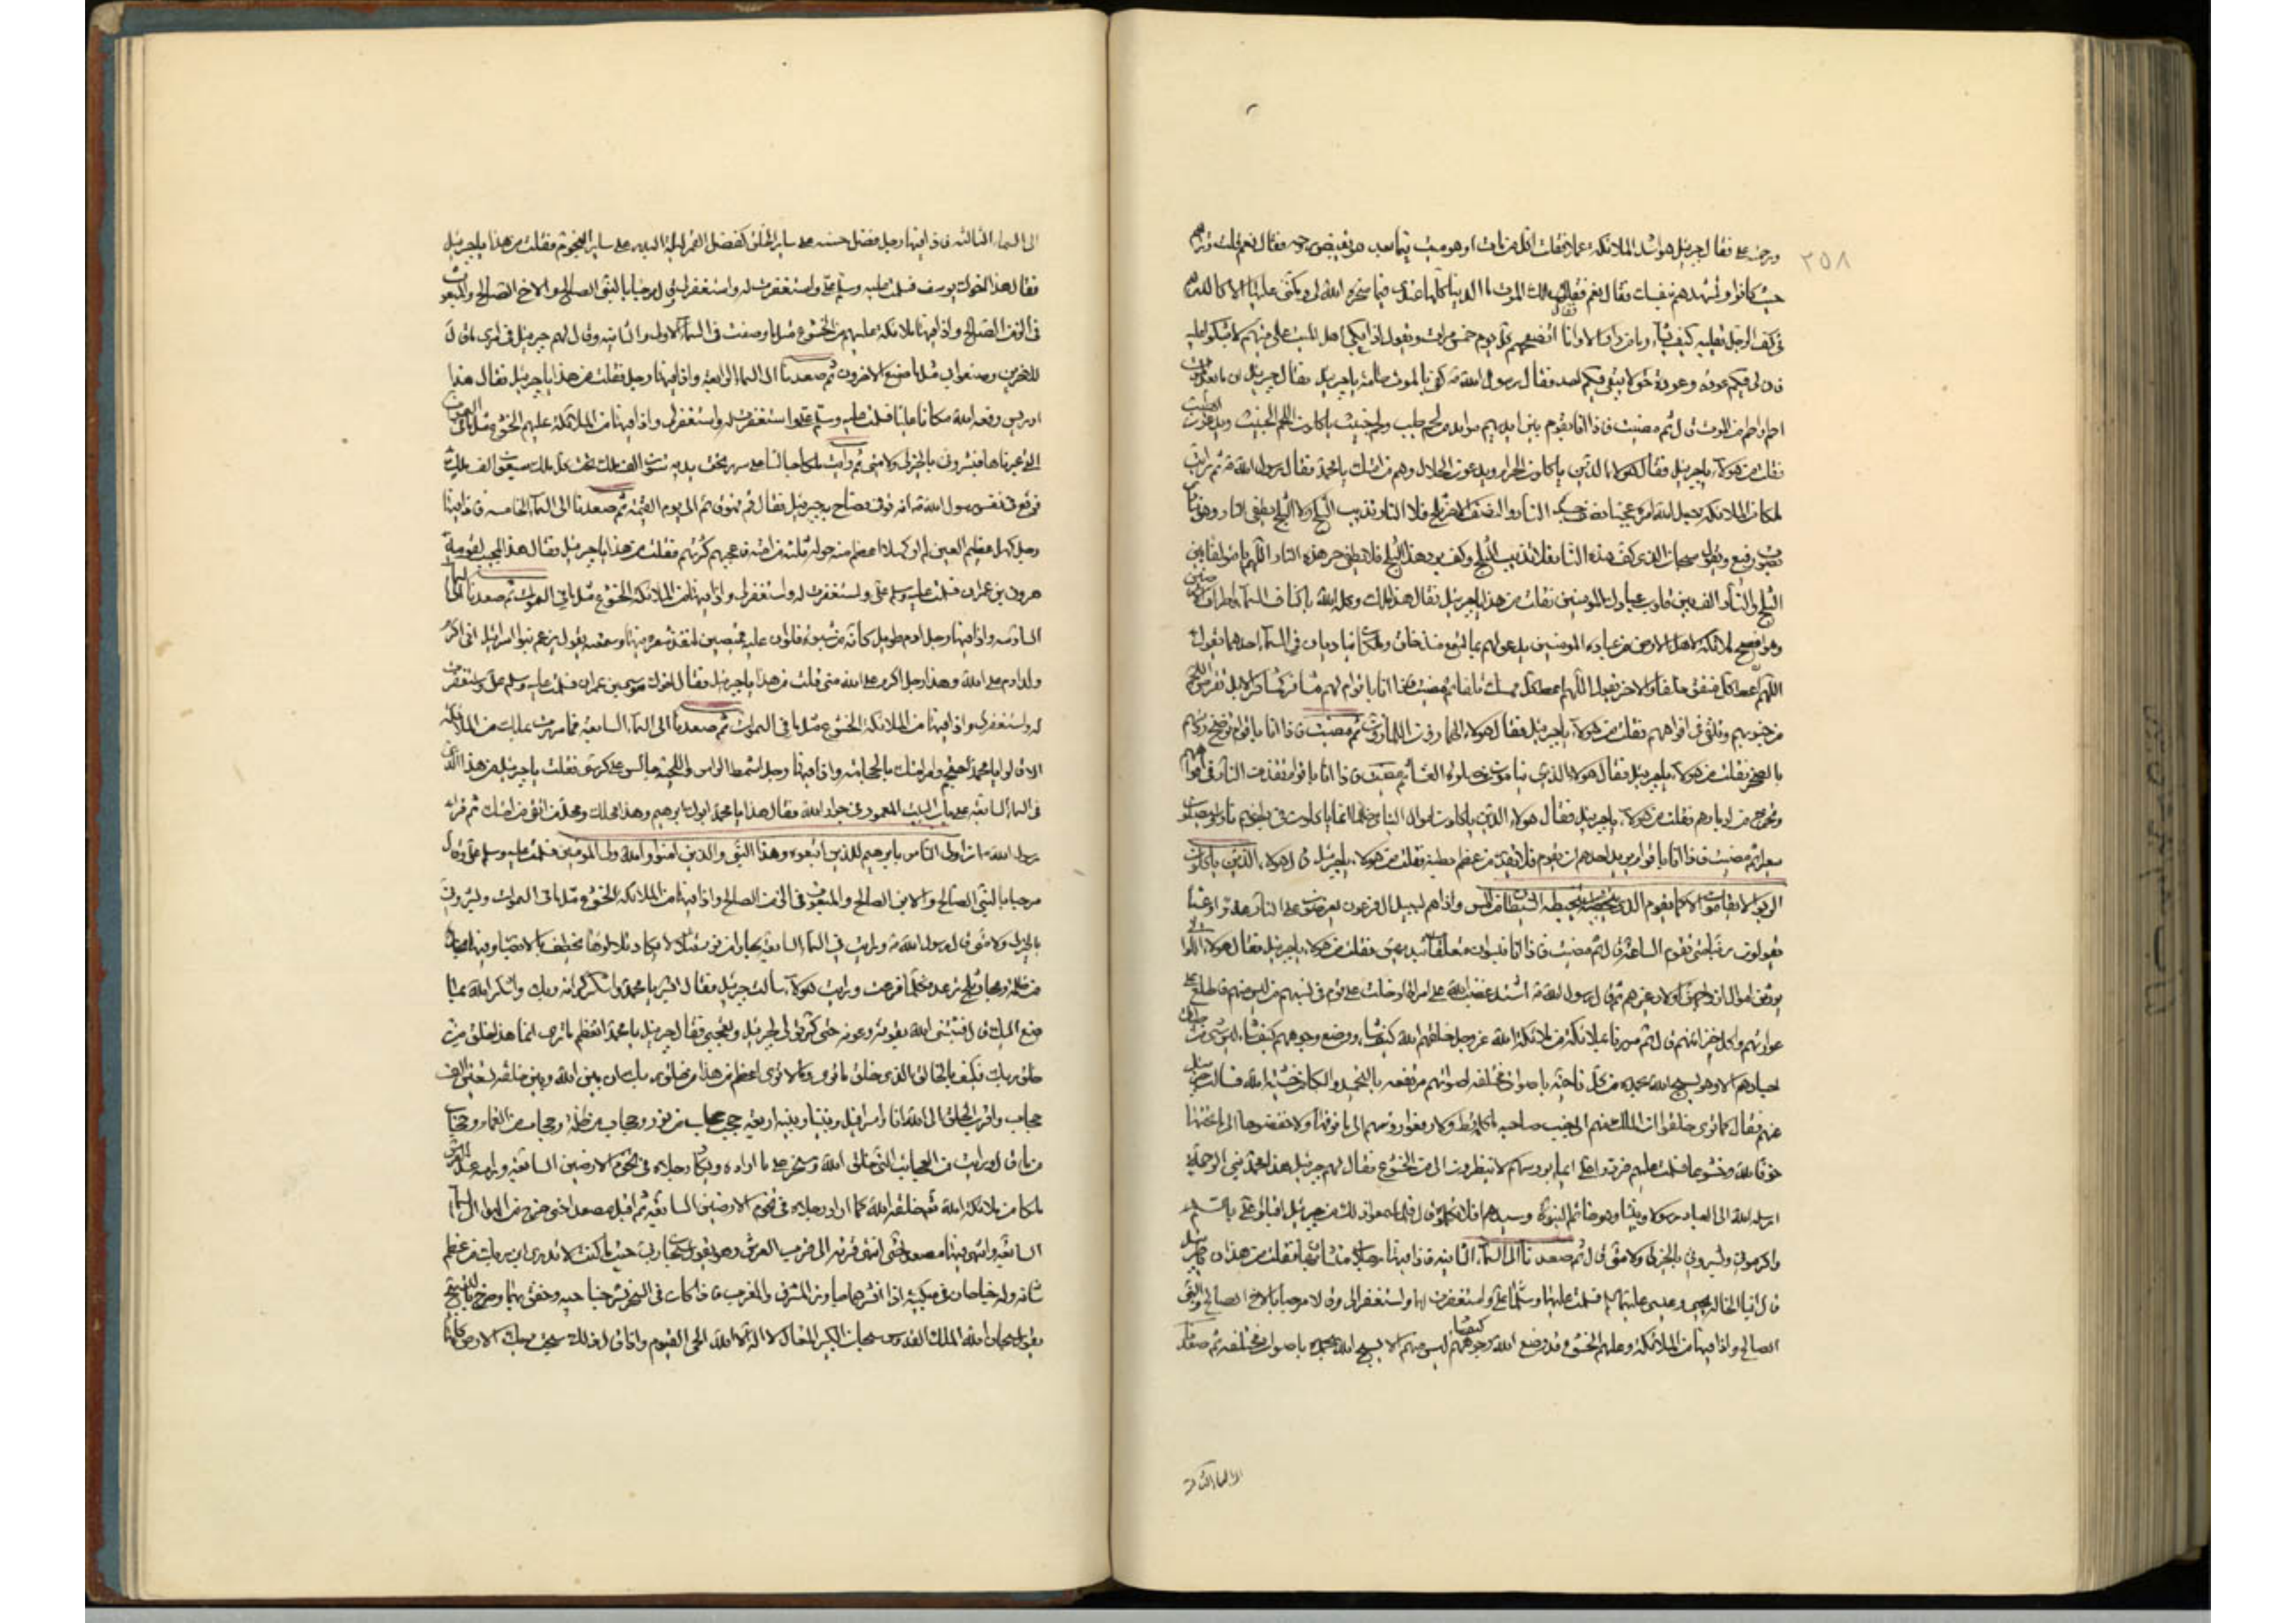 ٢٥٨
فقال جبرئيل هو اشد الملائكة عملا فقلت اكل من مات او هو ميت فيما بعد هو يقبض روحه فقال نعم قلت وتراهم
حيث كانوا وتشهدهم بنفسك فقال نعم فقال ملك الموت ما الدنيا كلها عندي فيما سخره الله لي ومكنني عليها الا كالدرهم
في كف الرجل يقلبه كيف يشاء وما من دار الا وانا اتصفحهم كل يوم خمس مرات واقول اذا بكى اهل الميت على ميتهم لا تبكوا عليه
فان لي فيكم عودة وعودة حتى لا يبقى منكم احد فقال رسول الله كفى بالموت طامة يا جبرئيل فقال جبرئيل ان ما بعد الموت
اطم واطم من الموت قال ثم مضيت فاذا انا بقوم بين ايديهم موائد من لحم طيب ولحم خبيث ياكلون اللحم الخبيث ويدعون الطيب
فقلت من هؤلاء يا جبرئيل فقال هؤلاء الذين ياكلون الحرام ويدعون الحلال وهم من امتك يا محمد فقال رسول الله ثم رايت
ملكا من الملائكة جعل الله امره عجيبا نصف جسده النار والنصف الاخر ثلج فلا النار تذيب الثلج ولا الثلج يطفئ النار وهو ينادي
بصوت رفيع ويقول سبحان الذي كف حر هذه النار فلا تذيب الثلج وكف برد هذا الثلج فلا يطفئ حر هذه النار اللهم يا مؤلف بين
الثلج والنار الف بين قلوب عبادك المؤمنين فقلت من هذا يا جبرئيل فقال هذا ملك وكله الله باكناف السماء واطراف الارضين
وهو انصح ملائكة الله لاهل الارض من عباده المؤمنين يدعو لهم بما تسمع منذ خلق وملكان يناديان في السماء احدهما يقول
اللهم اعط كل منفق خلفا والاخر يقول اللهم اعط كل ممسك تلفا ثم مضيت فاذا انا باقوام لهم مشافر كمشافر الابل يقرض اللحم
من جنوبهم ويلقى في افواههم فقلت من هؤلاء يا جبرئيل فقال هؤلاء الهمازون اللمازون ثم مضيت فاذا انا باقوام ترضخ رؤسهم
بالصخر فقلت من هؤلاء يا جبرئيل فقال هؤلاء الذين ينامون عن صلوة العشاء ثم مضيت فاذا انا باقوام تقذف النار في افواههم
وتخرج من ادبارهم فقلت من هؤلاء يا جبرئيل فقال هؤلاء الذين ياكلون اموال اليتامى ظلما انما ياكلون في بطونهم نارا وسيصلون
سعيرا ثم مضيت فاذا انا باقوام يريد احدهم ان يقوم فلا يقدر من عظم بطنه فقلت من هؤلاء يا جبرئيل قال هؤلاء الذين ياكلون
الربوا لا يقومون الا كما يقوم الذي يتخبطه الشيطان من المس واذا هم بسبيل ال فرعون يعرضون على النار غدوا وعشيا
يقولون ربنا متى تقوم الساعة قال ثم مضيت فاذا انا بنسوان معلقات بثديهن فقلت من هؤلاء يا جبرئيل فقال هؤلاء اللواتي
يورثن اموال ازواجهن اولاد غيرهم ثم قال رسول الله اشتد غضب الله على امراة ادخلت على قوم في نسبهم من ليس منهم فاطلع على
عوراتهم واكل خزائنهم قال ثم مررنا بملائكة من ملائكة الله عز وجل خلقهم الله كيف شاء ووضع وجوههم كيف شاء ليس شيء من
اجسادهم الا وهو يسبح الله بحمده من كل ناحية باصوات مختلفة اصواتهم مرتفعة بالتحميد والبكاء من خشية الله فسالت جبرئيل
عنهم فقال كما ترى خلقوا ان الملك منهم الى جنب صاحبه ما كلمه قط ولا رفعوا رؤسهم الى ما فوقها ولا خفضوها الى ما تحتها
خوفا لله وخشوعا فسلمت عليهم فردوا علي ايماء برؤسهم لا ينظرون الي من الخشوع فقال لهم جبرئيل هذا محمد نبي الرحمة
ارسله الله الى العباد رسولا ونبيا وهو خاتم النبوة وسيدهم افلا تكلمونه قال فلما سمعوا ذلك من جبرئيل اقبلوا علي بالسلام
واكرموني وبشروني بالخير لي ولامتي قال ثم صعدنا الى السماء الثانية فاذا فيها رجلان متشابهان فقلت من هذان يا جبرئيل
قال ابنا الخالة يحيى وعيسى عليهما فسلمت عليهما وسلما علي واستغفرت لهما واستغفرا لي وقالا مرحبا بالاخ الصالح والنبي
الصالح واذا فيها من الملائكة وعليهم الخشوع قد وضع الله وجوههم كيف شاء ليس منهم الا يسبح الله بحمده باصوات مختلفة ثم صعدنا
الى السماء الثالثة
الى السماء الثالثة فاذا فيها رجل فضل حسنه على ساير الخلق كفضل القمر ليلة البدر على ساير النجوم فقلت من هذا يا جبرئيل
فقال هذا اخوك يوسف فسلمت عليه وسلم علي واستغفرت له واستغفر لي وقال مرحبا بالنبي الصالح والاخ الصالح والمبعوث
في الزمن الصالح واذا فيها ملائكة عليهم من الخشوع مثل ما وصفت في السماء الاولى والثانية وقال لهم جبرئيل في امري ما قال
للاخرين وصنعوا بي مثل ما صنع الاخرون ثم صعدنا الى السماء الرابعة واذا فيها رجل فقلت من هذا يا جبرئيل فقال هذا
ادريس رفعه الله مكانا عليا فسلمت عليه وسلم علي واستغفرت له واستغفر لي واذا فيها من الملائكة عليهم الخشوع مثل ما في السموات
التي عبرناها فبشروني بالخير لي ولامتي ثم رايت ملكا جالسا على سرير تحت يديه سبعون الف ملك تحت كل ملك سبعون الف ملك
فوقع في نفس رسول الله انه هو فصاح به جبرئيل فقال قم فهو قائم الى يوم القيمة ثم صعدنا الى السماء الخامسة فاذا فيها
رجل كهل عظيم العين لم ار كهلا اعظم منه حوله ثلة من امته فاعجبني كثرتهم فقلت من هذا يا جبرئيل فقال هذا المجيب لقومه
هرون بن عمران فسلمت عليه وسلم علي واستغفرت له واستغفر لي واذا فيها من الملائكة الخشوع مثل ما في السموات ثم صعدنا الى السماء
السادسة واذا فيها رجل ادم طويل كانه من شبوة ولو ان عليه قميصين لنفذ شعره فيهما وسمعته يقول يزعم بنو اسرائيل اني اكرم
ولد ادم على الله وهذا رجل اكرم على الله مني فقلت من هذا يا جبرئيل فقال اخوك موسى بن عمران فسلمت عليه وسلم علي واستغفرت
له واستغفر لي واذا فيها من الملائكة الخشوع مثل ما في السموات ثم صعدنا الى السماء السابعة فما مررت بملك من الملائكة
الا قالوا يا محمد احتجم وامر امتك بالحجامة واذا فيها رجل اشمط الراس واللحية جالس على كرسي فقلت يا جبرئيل من هذا الذي
في السماء السابعة على باب البيت المعمور في جوار الله فقال هذا يا محمد ابوك ابراهيم وهذا محلك ومحل من اتقى من امتك ثم قرا
رسول الله ان اولى الناس بابرهيم للذين اتبعوه وهذا النبي والذين امنوا والله ولي المؤمنين فسلمت عليه وسلم علي وقال
مرحبا بالنبي الصالح والابن الصالح والمبعوث في الزمن الصالح واذا فيها من الملائكة الخشوع مثل ما في السموات وبشروني
بالخير لي ولامتي قال رسول الله ورايت في السماء السابعة بحارا من نور يتلالا يكاد تلالؤها يخطف بالابصار وفيها بحار
من ظلمة وبحار ثلج ترعد فكلما فزعت ورايت هؤلاء سالت جبرئيل فقال ابشر يا محمد واشكر كرامة ربك واشكر الله بما
صنع اليك قال فثبتني الله بقوته وعونه حتى كثر قولي لجبرئيل وتعجبي فقال جبرئيل يا محمد اتعظم ما ترى انما هذا خلق من
خلق ربك فكيف بالخالق الذي خلق ما ترى وما لا ترى اعظم من هذا من خلق ربك ان بين الله وبين خلقه تسعين الف
حجاب واقرب الخلق الى الله انا واسرافيل وبيننا وبينه اربعة حجب حجاب من نور وحجاب من ظلمة وحجاب من الغمام وحجاب
من ماء قال ورايت من العجايب التي خلق الله وسخر على ما اراده ديكا رجلاه في تخوم الارضين السابعة وراسه عند العرش
ملكا من ملائكة الله خلقه الله كما اراد رجلاه في تخوم الارضين السابعة ثم اقبل مصعدا حتى خرج في الهواء الى السماء
السابعة وانتهى فيها مصعدا حتى انتهى قرنه الى قرب العرش وهو يقول سبحان ربي حيث ما كنت لا تدري اين ربك من عظم
شانه وله جناحان في منكبيه اذا نشرهما جاوز المشرق والمغرب فاذا كان في السحر نشر جناحيه وخفق بهما وصرخ بالتسبيح
يقول سبحان الله الملك القدوس سبحان الكبير المتعال لا اله الا الله الحي القيوم واذا قال ذلك سبحت ديوك الارض كلها